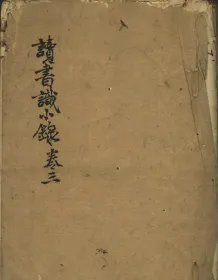 讀書識小錄卷三